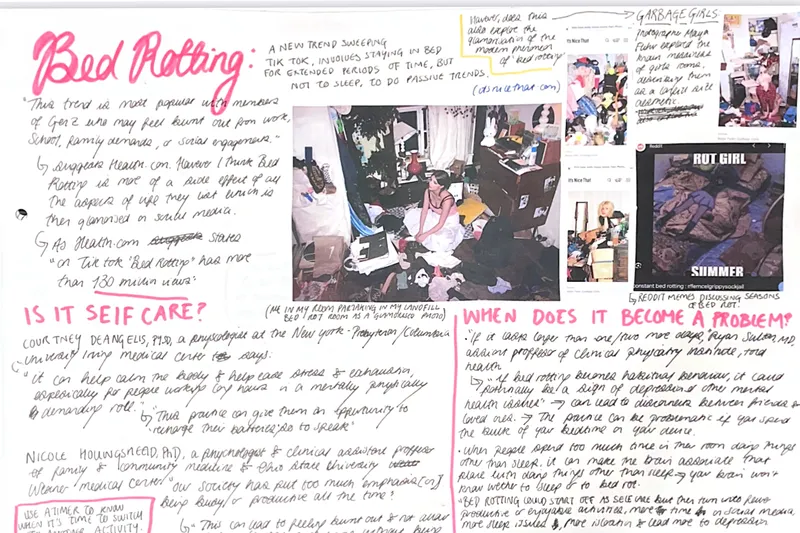 Bed Rotting:
A NEW TREND SWEEPING
TIK TOK, INVOLVES STAYING IN BED
FOR EXTENDED PERIODS OF TIME, BUT
NOT TO SLEEP, TO DO PASSIVE TRENDS.
"This trend is most popular with members
of Gen Z who may feel burnt out from work,
School, family demands, or social engagements."
↳ Suggests Health.com. However I think Bed
Rotting is more of a side effect of all
the aspects of life they lost which is
then glamorised on social media.
↳ As Health.com stated
"on Tik tok 'Bed Rotting' has more
than 130 million views"
However, does this
also explore the
glamorisation of the
modern phenomen
of 'bed rotting'
(itsnicethat.com)
GARBAGE GIRLS
photographer Maya
Fuhr explored the
messes
of girls rooms,
describing them
as a
aesthetic
It's Nice That
It's Nice That
It's Nice That
Reddit
ROT GIRL
SUMMER
constant bed rotting : r/femcelgrippysockjail
↳ REDDIT MEMES DISCUSSING SEASONS
OF BED ROT.
(ME IN MY ROOM PARTAKING IN MY LANDFILL
BED ROT ROOM AS A GLAMOURISED PHOTO)
IS IT SELF CARE?
COURTNEY DEANGELIS, PSYD, a psychologist at the New York-Presbyterian/Columbia
University Irving medical center says:
"it can help calm the body & help ease stress & exhaustion,
especially for people working long hours in a mentally/physically
demanding role."
↳ "This practice can give them an oppertunity to
recharge their batteries, so to speak"
NICOLE HOLLINGSHEAD, PhD, a psychologist & clinical assistant proffesor
of family & community medicine @ Ohio State University
Wexner medical center "our society has put too much emphasis [on]
being busy or productive all the time?
↳ "This can lead to feeling burnt out & not
USE A TIMER TO KNOW
WHEN IT'S TIME TO SWITCH
ACTIVITY.
WHEN DOES IT BECOME A PROBLEM?
"If it lasts longer than one/two more days," Ryan Sultan, MD,
assistant proffesor of clinical physciatry told
health
↳ "if bed rotting becomes habitual behaviour, it could
potentially be a sign of depression & other mental
health issues" → can lead to disconnects between friends &
loved ones. → The practice can be problematic if you spend
the bulk of your bedtime on your device.
• When people spend too much time in their room doing things
other than sleep, it can make the brain associate that
place with doing things other than sleep → your brain won't
know whether to sleep or to bed rot.
"BED ROTTING COULD START OFF AS SELF CARE but then turn into fewer
productive or enjoyable activities, more time on social media,
more sleep issues & more isolation & lead more to depression